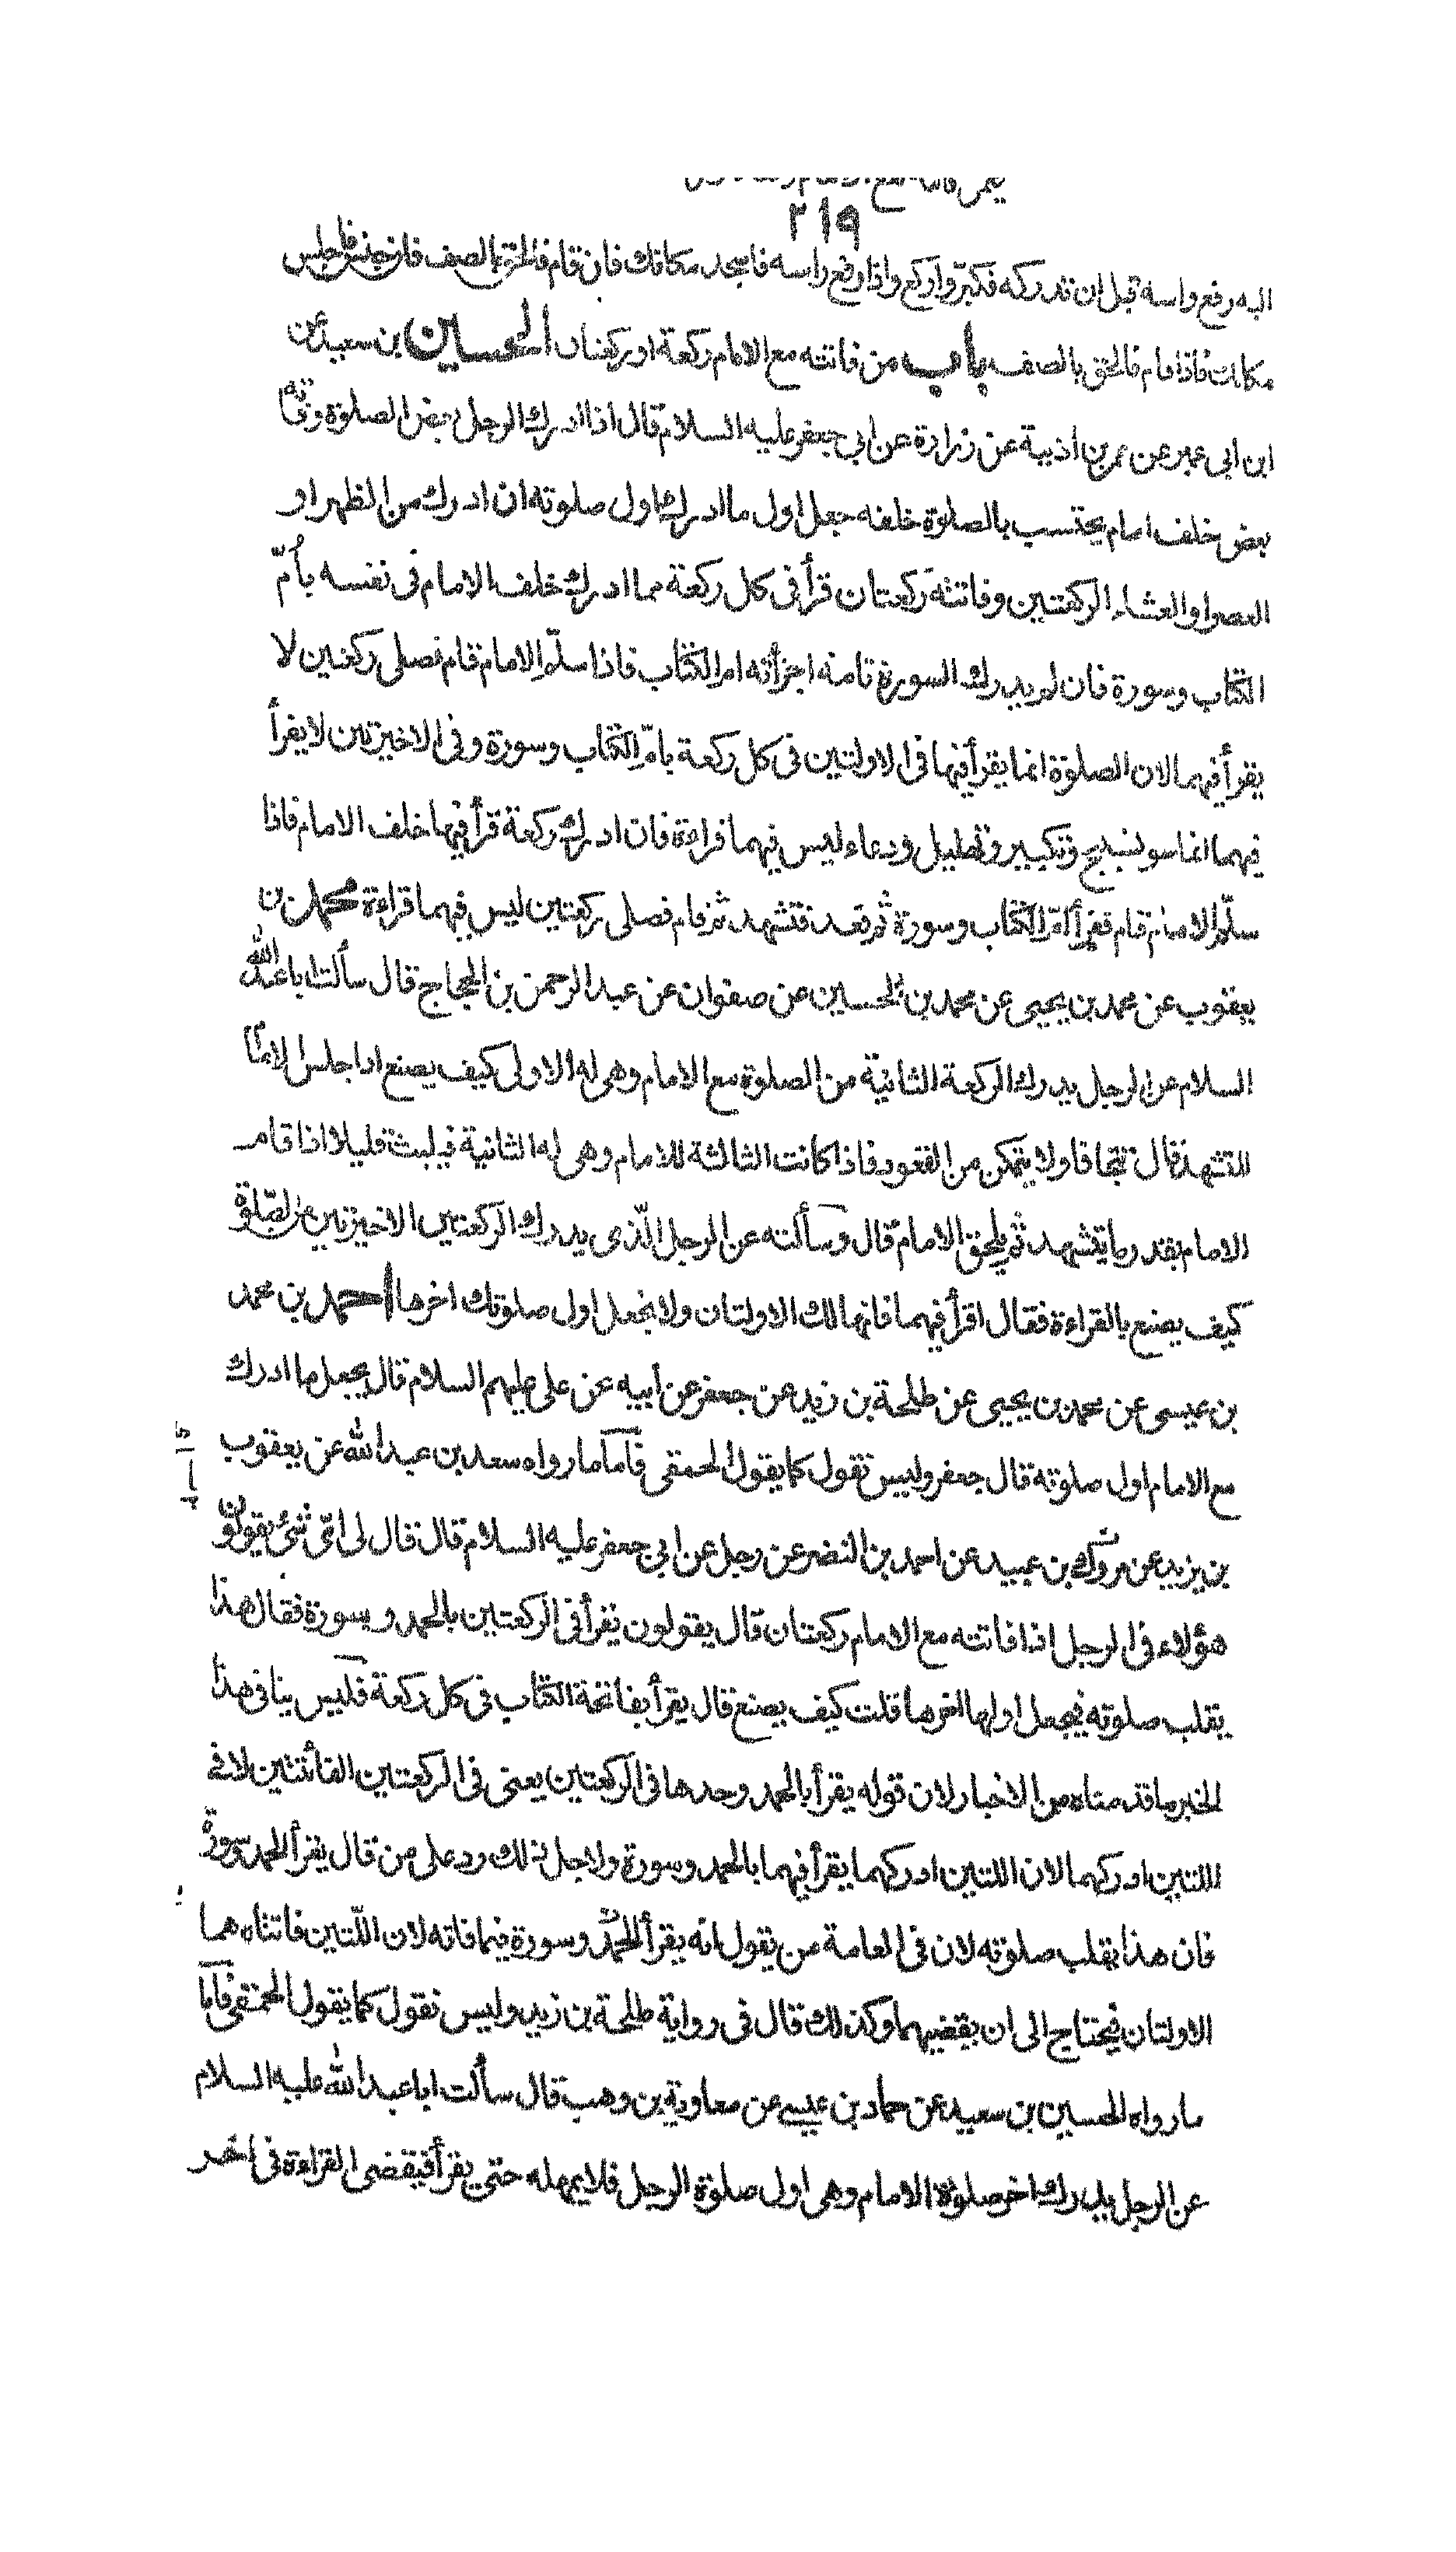 ٢١٩
اليه رفع راسه قبل ان تدركه فكبر واركع واذا رفع راسه فاسجد مكانك فان قام فالحق بالصف فان جلس فاجلس
مكانك فاذا قام فالحق بالصف باب من فاتته مع الامام ركعة او ركعتان الحسين بن سعيد عن
ابن ابي عمير عن عمر بن اذينة عن زرارة عن ابي جعفر عليه السلام قال اذا ادرك الرجل بعض الصلوة وفاته
بعض خلف امام يحتسب بالصلوة خلفه جعل اول ما ادرك اول صلوته ان ادرك من الظهر او
العصر او العشاء الركعتين وفاتته ركعتان قرأ في كل ركعة مما ادرك خلف الامام في نفسه بأمّ
الكتاب وسورة فان لم يدرك السورة تامة اجزأته ام الكتاب فاذا سلّم الامام قام فصلى ركعتين لا
يقرأ فيهما لان الصلوة انما يقرأ فيها في الاولتين في كل ركعة بامّ الكتاب وسورة وفي الاخيرتين لا يقرأ
فيهما انما هو تسبيح وتكبير وتهليل ودعاء ليس فيهما قراءة فان ادرك ركعة قرأ فيها خلف الامام فاذا
سلّم الامام قام فقرأ امّ الكتاب وسورة ثم قعد فتشهد ثم قام فصلى ركعتين ليس فيهما قراءة محمد بن
يعقوب عن محمد بن يحيى عن محمد بن الحسين عن صفوان عن عبد الرحمن بن الحجاج قال سألت ابا عبد الله
السلام عن الرجل يدرك الركعة الثانية من الصلوة مع الامام وهي له الاولى كيف يصنع اذا جلس الامام
للتشهد قال يتجافا ولا يتمكن من القعود فاذا كانت الثالثة للامام وهي له الثانية فيلبث قليلا اذا قام
الامام بقدر ما يتشهد ثم يلحق الامام قال وسألته عن الرجل الّذي يدرك الركعتين الاخيرتين من الصلوة
كيف يصنع بالقراءة فقال اقرأ فيهما فانهما لك الاولتان ولا تجعل اول صلوتك اخرها احمد بن محمد
بن عيسى عن محمد بن يحيى عن طلحة بن زيد عن جعفر عن أبيه عن علي عليهم السلام قال يجعل ما ادرك
مع الامام اول صلوته قال جعفر وليس نقول كما يقول الحمقى فأما ما رواه سعد بن عبد الله عن يعقوب
بن يزيد عن مروك بن عبيد عن احمد بن النضر عن رجل عن ابي جعفر عليه السلام قال قال لي اىّ شئ يقولون
هؤلاء في الرجل اذا فاتته مع الامام ركعتان قال يقولون يقرأ في الركعتين بالحمد وسورة فقال هذا
يقلب صلوته فيجعل اولها اخرها قلت كيف يصنع قال يقرأ بفاتحة الكتاب في كل ركعة فليس ينافي هذا
الخبر ما قدمناه من الاخبار لان قوله يقرأ بالحمد وحدها في الركعتين يعني في الركعتين الفائتتين لا في
اللتين ادركهما لان اللتين ادركهما يقرأ فيهما بالحمد وسورة ولاجل ذلك رد على من قال يقرأ الحمد وسورة
فان هذا يقلب صلوته لان في العامة من يقول انه يقرأ الحمد وسورة فيما فاته لان اللّتين فاتتاه هما
الاولتان فيحتاج الى ان يقضيهما وكذلك قال في رواية طلحة بن زيد وليس نقول كما يقول الحمقى فأما
ما رواه الحسين بن سعيد عن حماد بن عيسى عن معاوية بن وهب قال سألت ابا عبد الله عليه السلام
عن الرجل يدرك اخر صلوة الامام وهي اول صلوة الرجل فلا يمهله حتى يقرأ فيقضى القراءة في اخر